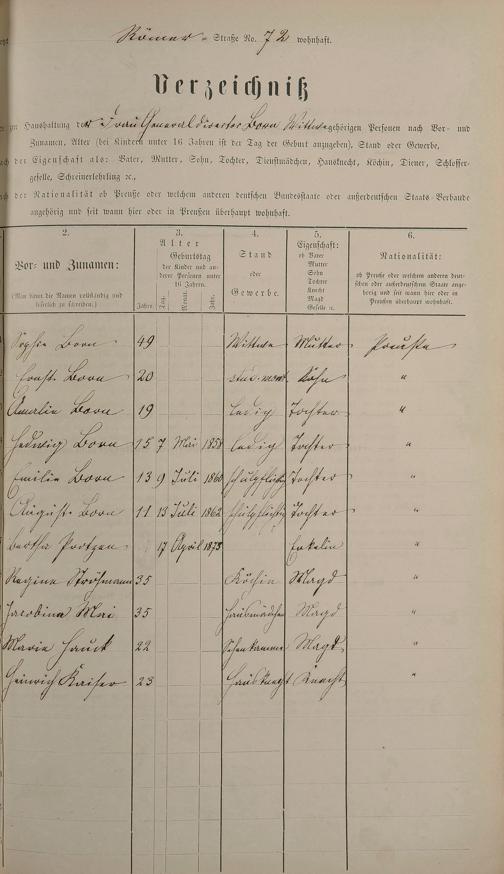 Römer-Straße No. 72 wohnhaft.
Verzeichniß
zur Haushaltung der Frau Generaldirector Born Wittwe gehörigen Personen nach Vor- und
Zunamen, Alter (bei Kindern unter 16 Jahren ist der Tag der Geburt anzugeben), Stand oder Gewerbe,
der Eigenschaft als: Vater, Mutter, Sohn, Tochter, Dienstmädchen, Hausknecht, Köchin, Diener, Schlosser-
geselle, Schreinerlehrling ꝛc.,
der Nationalität ob Preuße oder welchem anderen deutschen Bundesstaate oder außerdeutschen Staats-Verbande
angehörig und seit wann hier oder in Preußen überhaupt wohnhaft.
2. 3. 4. 5. 6.
Vor- und Zunamen:
(Man bittet die Namen vollständig und
leserlich zu schreiben.)
Alter
Jahre.
Geburtstag
der Kinder und an-
derer Personen unter
16 Jahren.
Tag. Monat. Jahr.
Stand
oder
Gewerbe.
Eigenschaft:
ob Vater
Mutter
Sohn
Tochter
Knecht
Magd
Geselle ꝛc.
Nationalität:
ob Preuße oder welchem anderen deut-
schen oder außerdeutschen Staate ange-
hörig und seit wann hier oder in
Preußen überhaupt wohnhaft.
Sophie Born 49 Wittwe Mutter Preußen
Ernst Born 20 Sohn "
Amalie Born 19 ledig Tochter "
Hedwig Born 15 7 Mai 1858 ledig Tochter "
Emilie Born 13 9 Juli 1860 schulpflichtig Tochter "
August Born 11 13 Juli 1862 schulpflichtig Tochter "
Bertha Protzen 17 April 1873 Enkelin "
Regina Strohmann 35 Köchin Magd "
Jacobina Mai 35 Hausmädchen Magd "
Marie Hauck 22 Magd "
Heinrich Kaiser 23 Hausknegt Knecht "